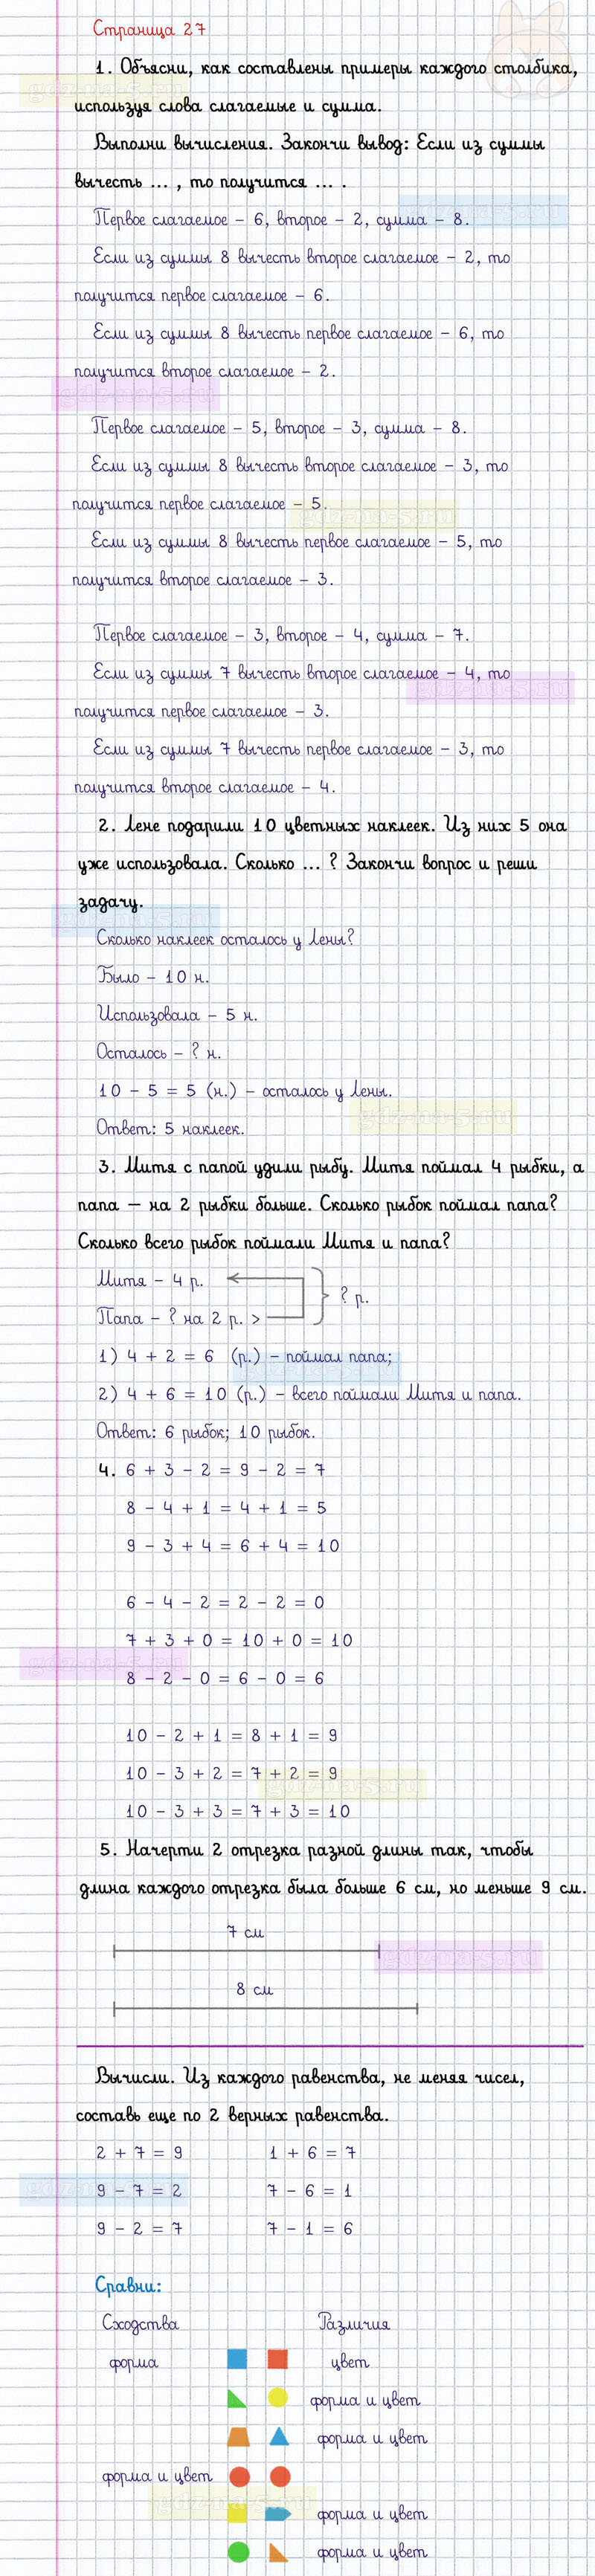 Страница 27
1. Объясни, как составлены примеры каждого столбика,
используя слова слагаемые и сумма.
Выполни вычисления. Закончи вывод: Если из суммы
вычесть ... , то получится ... .
Первое слагаемое – 6, второе – 2, сумма – 8.
Если из суммы 8 вычесть второе слагаемое – 2, то
получится первое слагаемое – 6.
Если из суммы 8 вычесть первое слагаемое – 6, то
получится второе слагаемое – 2.
Первое слагаемое – 5, второе – 3, сумма – 8.
Если из суммы 8 вычесть второе слагаемое – 3, то
получится первое слагаемое – 5.
Если из суммы 8 вычесть первое слагаемое – 5, то
получится второе слагаемое – 3.
Первое слагаемое – 3, второе – 4, сумма – 7.
Если из суммы 7 вычесть второе слагаемое – 4, то
получится первое слагаемое – 3.
Если из суммы 7 вычесть первое слагаемое – 3, то
получится второе слагаемое – 4.
2. Лене подарили 10 цветных наклеек. Из них 5 она
уже использовала. Сколько ... ? Закончи вопрос и реши
задачу.
Сколько наклеек осталось у Лены?
Было – 10 н.
Использовала – 5 н.
Осталось – ? н.
10 – 5 = 5 (н.) – осталось у Лены.
Ответ: 5 наклеек.
3. Митя с папой удили рыбу. Митя поймал 4 рыбки, а
папа — на 2 рыбки больше. Сколько рыбок поймал папа?
Сколько всего рыбок поймали Митя и папа?
Митя – 4 р.
? р.
Папа – ? на 2 р. >
1) 4 + 2 = 6 (р.) – поймал папа;
2) 4 + 6 = 10 (р.) – всего поймали Митя и папа.
Ответ: 6 рыбок; 10 рыбок.
4. 6 + 3 – 2 = 9 – 2 = 7
8 – 4 + 1 = 4 + 1 = 5
9 – 3 + 4 = 6 + 4 = 10
6 – 4 – 2 = 2 – 2 = 0
7 + 3 + 0 = 10 + 0 = 10
8 – 2 – 0 = 6 – 0 = 6
10 – 2 + 1 = 8 + 1 = 9
10 – 3 + 2 = 7 + 2 = 9
10 – 3 + 3 = 7 + 3 = 10
5. Начерти 2 отрезка разной длины так, чтобы
длина каждого отрезка была больше 6 см, но меньше 9 см.
7 см
8 см
Вычисли. Из каждого равенства, не меняя чисел,
составь еще по 2 верных равенства.
2 + 7 = 9 1 + 6 = 7
9 – 7 = 2 7 – 6 = 1
9 – 2 = 7 7 – 1 = 6
Сравни:
Сходства Различия
форма цвет
форма и цвет
форма и цвет
форма и цвет
форма и цвет
форма и цвет